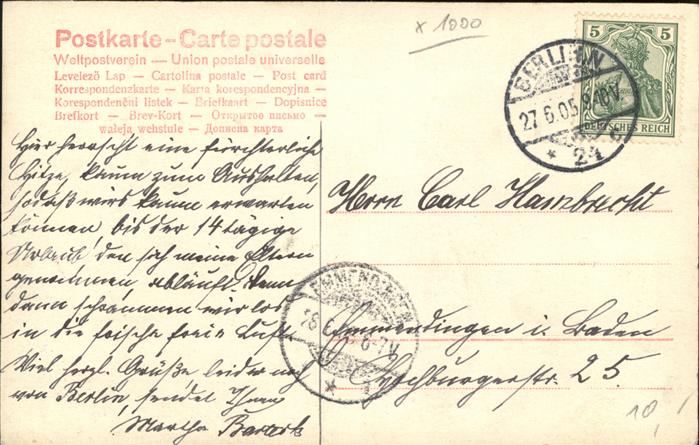 x 1000
Postkarte – Carte postale
Weltpostverein — Union postale universelle
Levelező Lap — Cartolina postale — Post card
Korrespondenzkarte — Karta korespondencyjna —
Korespondenční lístek — Briefkaart — Dopisnice
Brefkort — Brev-Kort — Открытое письмо —
waleja wehstule — Дописна карта
BERLIN N
27.6.05. 8-10V.
* 24 b.
5 5
DEUTSCHES REICH
Hier herrscht eine fürchterliche
Hitze, kaum zum Aushalten,
sodaß wirs kaum erwarten
können, bis der 14 tägige
Urlaub, den sich meine Eltern
genommen, abläuft. Denn
dann schrammen wir los
in die frische freie Luft.
Viel herzl. Grüße, leider noch
von Berlin, sendet Ihnen
Martha
Herrn Carl Hambrecht
EMMENDINGEN
6-7V.
Emmendingen i. Baden
Hochburgerstr. 25.
10,